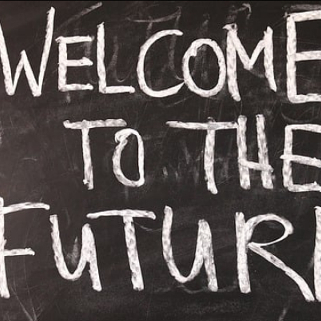 WELCOME
TO THE
FUTUR